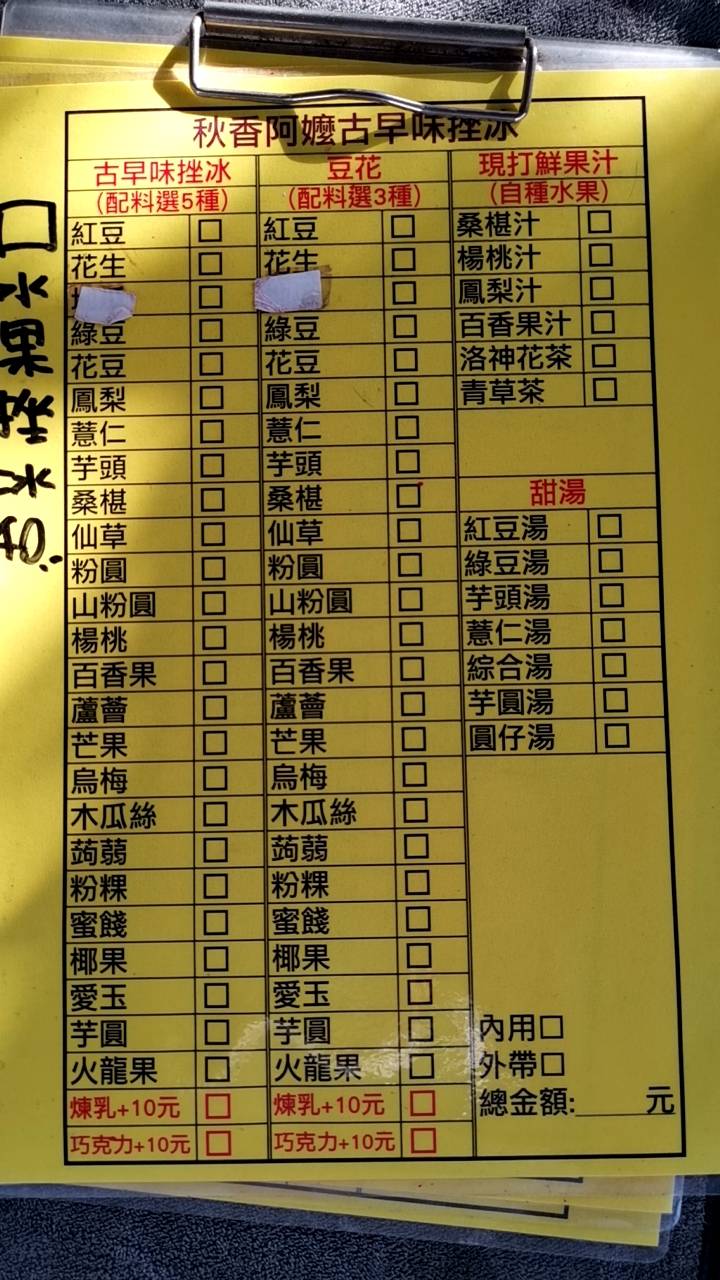 秋香阿嬤古早味挫冰
古早味挫冰
(配料選5種)
紅豆
花生
綠豆
花豆
鳳梨
薏仁
芋頭
桑椹
仙草
粉圓
山粉圓
楊桃
百香果
蘆薈
芒果
烏梅
木瓜絲
蒟蒻
粉粿
蜜餞
椰果
愛玉
芋圓
火龍果
煉乳+10元
巧克力+10元
豆花
(配料選3種)
紅豆
花生
綠豆
花豆
鳳梨
薏仁
芋頭
桑椹
仙草
粉圓
山粉圓
楊桃
百香果
蘆薈
芒果
烏梅
木瓜絲
蒟蒻
粉粿
蜜餞
椰果
愛玉
芋圓
火龍果
煉乳+10元
巧克力+10元
現打鮮果汁
(自種水果)
桑椹汁
楊桃汁
鳳梨汁
百香果汁
洛神花茶
青草茶
甜湯
紅豆湯
綠豆湯
芋頭湯
薏仁湯
綜合湯
芋圓湯
圓仔湯
內用
外帶
總金額:_____元
水果